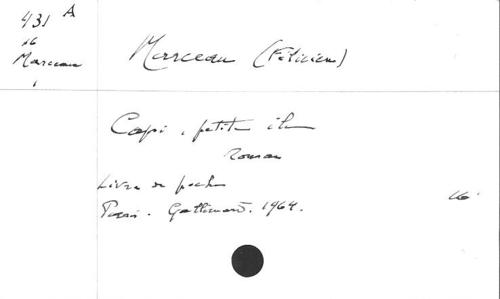 431 A
16
Marceau
Marceau (Félicien)
Capri, petite île
roman
Livre de poche
Paris. Gallimard. 1964.
16